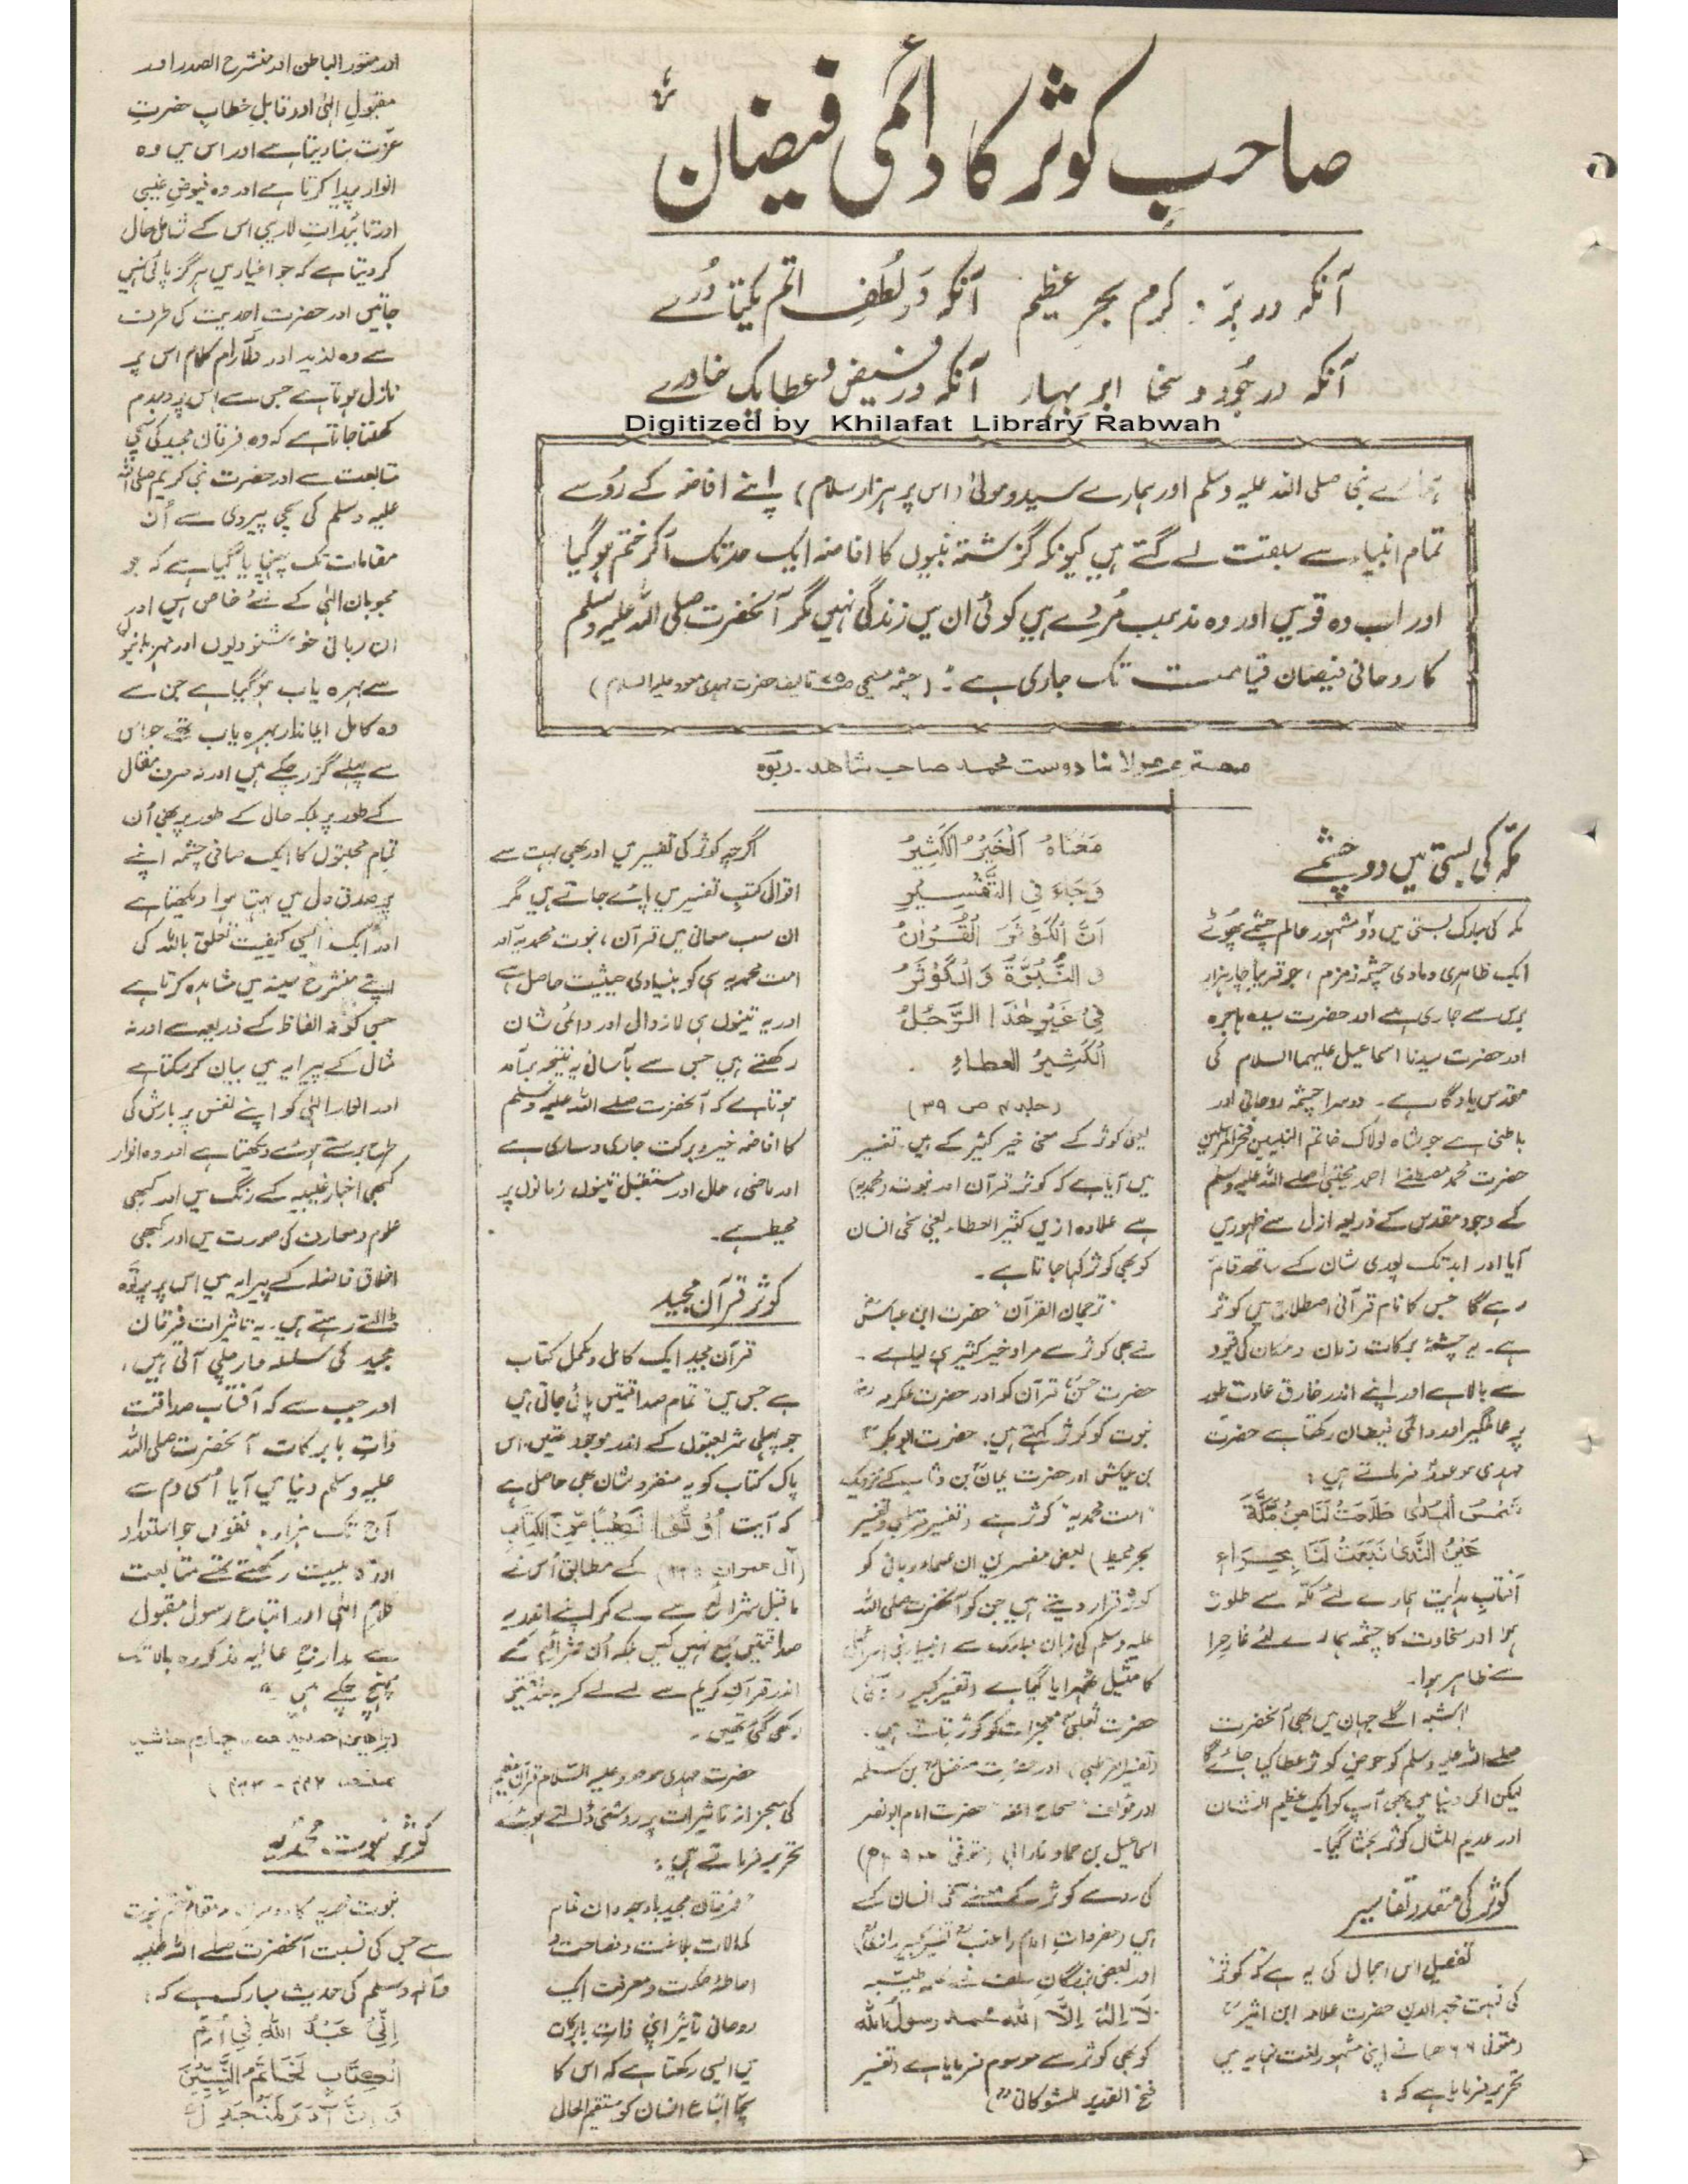 صاحبِ کوثر کا دائمی فیضان
آنکہ در برّ و کرم بحرِ عظیم آنکہ در لُطفِ اتم یکتا دُرے
آنکہ در جُود و سخا ابرِ بہار آنکہ در فیض و عطا یک خاورے
Digitized by Khilafat Library Rabwah
ہمارے نبی صلی اللہ علیہ وسلم اور ہمارے سید و مولیٰ (اس پر ہزار سلام) اپنے افاضہ کے رُو سے
تمام انبیاء سے سبقت لے گئے ہیں کیونکہ گزشتہ نبیوں کا افاضہ ایک حد تک آکر ختم ہو گیا
اور اب وہ قومیں اور وہ مذہب مُردے ہیں کوئی ان میں زندگی نہیں مگر آنحضرت صلی اللہ علیہ وسلم
کا روحانی فیضان قیامت تک جاری ہے (چشمہ مسیحی تالیف حضرت مہدی موعود علیہ السلام)
مولانا دوست محمد صاحب شاہد۔ ربوہ
مکّہ کی بستی میں دو چشمے
مکہ کی مبارک بستی میں دو مشہور عالم چشمے پھُوٹے
ایک ظاہری و مادی چشمہ زمزم، جو قریباً چار ہزار
برس سے جاری ہے اور حضرت سیدہ ہاجرہ
اور حضرت سیدنا اسماعیل علیہما السلام کی
مقدس یادگار ہے۔ دوسرا چشمہ روحانی اور
باطنی ہے جو شاہ لولاک خاتم النبیین فخر المرسلین
حضرت محمد مصطفےٰ احمد مجتبیٰ صلے اللہ علیہ وسلم
کے وجود مقدس کے ذریعہ ازل سے ظہور میں
آیا اور ابد تک پوری شان کے ساتھ قائم
رہے گا جس کا نام قرآنی اصطلاح میں کوثر
ہے۔ یہ چشمۂ برکات زمان و مکان کی قیود
سے بالا ہے اور اپنے اندر خارق عادت طور
پر عالمگیر اور دائمی فیضان رکھتا ہے حضرت
مہدی موعودؑ فرماتے ہیں:
شَمْسُ الْہُدٰی طَلَعَتْ لَنَا مِنْ مَّکَّةَ
عَیْنُ النَّدٰی نَبَعَتْ لَنَا بِحِرَاءِ
آفتابِ ہدایت ہمارے لئے مکّہ سے طلوع
ہوا اور سخاوت کا چشمہ ہمارے لئے غارِ حرا
سے ظاہر ہوا۔
البتہ اگلے جہان میں بھی آنحضرت
صلے اللہ علیہ وسلم کو حوضِ کوثر عطا کیا جائے گا
لیکن اس دنیا میں بھی آپ کو ایک عظیم الشان
اور عدیم المثال کوثر بخشا گیا۔
کوثر کی متعدد تفاسیر
تفصیل اس اجمال کی یہ ہے کہ کوثر
کی نسبت مجد الدین حضرت علامہ ابن اثیرؒ
(متوفی ۶۰۶ھ) نے اپنی مشہور لغت نہایہ میں
تحریر فرمایا ہے کہ:
مَعْنَاہُ اَلْخَیْرُ الْکَثِیْرُ
وَجَاءَ فِی التَّفْسِیْرِ
اَنَّ الْکَوْثَرَ الْقُرْاٰنُ
وَ النُّبُوَّةُ وَ الْکَوْثَرُ
فِیْ غَیْرِ ھٰذَا الرَّجُلُ
اَلْکَثِیْرُ العطاءِ
(جلد ۴ ص ۳۹)
یعنی کوثر کے معنی خیر کثیر کے ہیں۔ تفسیر
میں آیا ہے کہ کوثر قرآن اور نبوت (محمدیہ)
ہے علاوہ ازیں کثیر العطاء یعنی سخی انسان
کو بھی کوثر کہا جاتا ہے۔
"ترجمان القرآن" حضرت ابن عباسؓ
نے بھی کوثر سے مراد خیر کثیر ہی لیا ہے۔
حضرت حسنؓ قرآن کو اور حضرت عکرمہؓ
نبوت کو کوثر کہتے ہیں۔ حضرت ابوبکرؒ
بن عیاش اور حضرت یمانؒ بن وثاب کے نزدیک
"امت محمدیہ" کوثر ہے (تفسیر قرطبی و تفسیر
بحر محیط) بعض مفسرین ان علماء ربانی کو
کوثر قرار دیتے ہیں جن کو آنحضرت صلی اللہ
علیہ وسلم کی زبان مبارک سے انبیاء بنی اسرائیل
کا مثیل ٹھہرایا گیا ہے (تفسیر کبیر رازیؒ)
حضرت ثعلبیؒ معجزات کو کوثر بتاتے ہیں۔
(تفسیر قرطبی) اور حضرت مفضلؒ بن سلمہ
اور مؤلف "صحاح اللغہ" حضرت امام ابو نصر
اسماعیل بن حماد فارابی
کی رو سے کوثر کے معنے سخی انسان کے
ہیں (مفردات امام راغبؒ تفسیر کبیر رازیؒ)
اور بعض بزرگانِ سلف نے کلمہ طیّبہ
لَا اِلٰہَ اِلَّا اللہ محمد رسول اللہ
کو بھی کوثر سے موسوم فرمایا ہے (تفسیر
فتح القدیر للشوکانیؒ)
اگرچہ کوثر کی تفسیر میں اور بھی بہت سے
اقوال کتبِ تفسیر میں پائے جاتے ہیں مگر
ان سب معانی میں قرآن، نبوت محمدیہ اور
امت محمدیہ ہی کو بنیادی حیثیت حاصل ہے
اور یہ تینوں ہی لازوال اور دائمی شان
رکھتے ہیں جس سے بآسانی یہ نتیجہ برآمد
ہوتا ہے کہ آنحضرت صلے اللہ علیہ وسلم
کا افاضہ خیر و برکت جاری و ساری ہے
اور ماضی، حال اور مستقبل تینوں زمانوں پر
محیط ہے۔
کوثر قرآن مجید
قرآن مجید ایک کامل و مکمل کتاب
ہے جس میں تمام صداقتیں پائی جاتی ہیں
جو پہلی شریعتوں کے اندر موجود تھیں، اس
پاک کتاب کو یہ منفرد شان بھی حاصل ہے
کہ آیت اُوْتُوْا نَصِیْبًا مِّنَ الْکِتَابِ
(آل عمران) کے مطابق اُس نے
ماقبل شرائع سے لے کر اپنے اندر یہ
صداقتیں جمع نہیں کیں بلکہ اُن شرائع کے
اندر قرآن کریم سے لے لے کر یہ صداقتیں
رکھی گئی تھیں۔
حضرت مہدی موعود علیہ السلام قرآن عظیم
کی معجزانہ تاثیرات پر روشنی ڈالتے ہوئے
تحریر فرماتے ہیں:
"فرقان مجید باوجود ان تمام
کمالات بلاغت و فصاحت و
احاطۂ حکمت و معرفت ایک
روحانی تاثیر اپنی ذات بابرکات
میں ایسی رکھتا ہے کہ اس کا
سچا اتباع انسان کو مستقیم الحال
اور منور الباطن اور منشرح الصدر اور
مقبولِ الٰہی اور قابلِ خطابِ حضرتِ
عزّت بنا دیتا ہے اور اس میں وہ
انوار پیدا کرتا ہے اور وہ فیوضِ غیبی
اور تائیداتِ لاریبی اس کے شامل حال
کر دیتا ہے کہ جو اغیار میں ہرگز پائی نہیں
جاتیں اور حضرت احدیت کی طرف
سے وہ لذیذ اور دلآرام کلام اس پر
نازل ہوتا ہے جس سے اس پر دمبدم
کھلتا جاتا ہے کہ وہ فرقان مجید کی سچی
متابعت سے اور حضرت نبی کریم صلی اللہ
علیہ وسلم کی سچی پیروی سے اُن
مقامات تک پہنچایا گیا ہے کہ جو
محبوبانِ الٰہی کے لئے خاص ہیں اور
ان ربانی خوشنودیوں اور مہربانیوں
سے بہرہ یاب ہو گیا ہے جن سے
وہ کامل ایماندار بہرہ یاب تھے جو اس
سے پہلے گزر چکے ہیں اور نہ صرف مقال
کے طور پر بلکہ حال کے طور پر بھی اُن
تمام محبتوں کا ایک صافی چشمہ اپنے
پر صدق دل میں بہتا ہوا دیکھتا ہے
اور ایک ایسی کیفیت تعلق باللہ کی
اپنے منشرح سینہ میں مشاہدہ کرتا ہے
جس کو نہ الفاظ کے ذریعہ سے اور نہ
مثال کے پیرایہ میں بیان کر سکتا ہے
اور انوار الٰہی کو اپنے نفس پر بارش کی
طرح برستے ہوئے دیکھتا ہے اور وہ انوار
کبھی اخبار غیبیہ کے رنگ میں اور کبھی
علوم و معارف کی صورت میں اور کبھی
اخلاق فاضلہ کے پیرایہ میں اس پر پرتوہ
ڈالتے رہتے ہیں۔ یہ تاثیرات فرقان
مجید کی سلسلہ وار چلی آتی ہیں،
اور جب سے کہ آفتاب صداقت
ذاتِ بابرکات آنحضرت صلی اللہ
علیہ وسلم دنیا میں آیا اُسی دم سے
آج تک ہزارہا نفوس جو استعداد
اور قابلیت رکھتے تھے متابعت
کلام الٰہی اور اتباع رسول مقبول
سے مدارج عالیہ مذکورہ بالا تک
پہنچ چکے ہیں"
(براہین احمدیہ حصہ چہارم حاشیہ
کوثر نبوت محمدیہ
نبوت محمدیہ کا دوسرا مقام ختم نبوت
ہے جس کی نسبت آنحضرت صلے اللہ علیہ
وآلہ وسلم کی حدیث مبارک ہے کہ:
اِنِّیْ عَبْدُ اللہِ فِیْ اُمِّ
الْکِتَابِ لَخَاتَمُ النَّبِیِّیْنَ
وَ اِنَّ آدَمَ لَمُنْجَدِلٌ